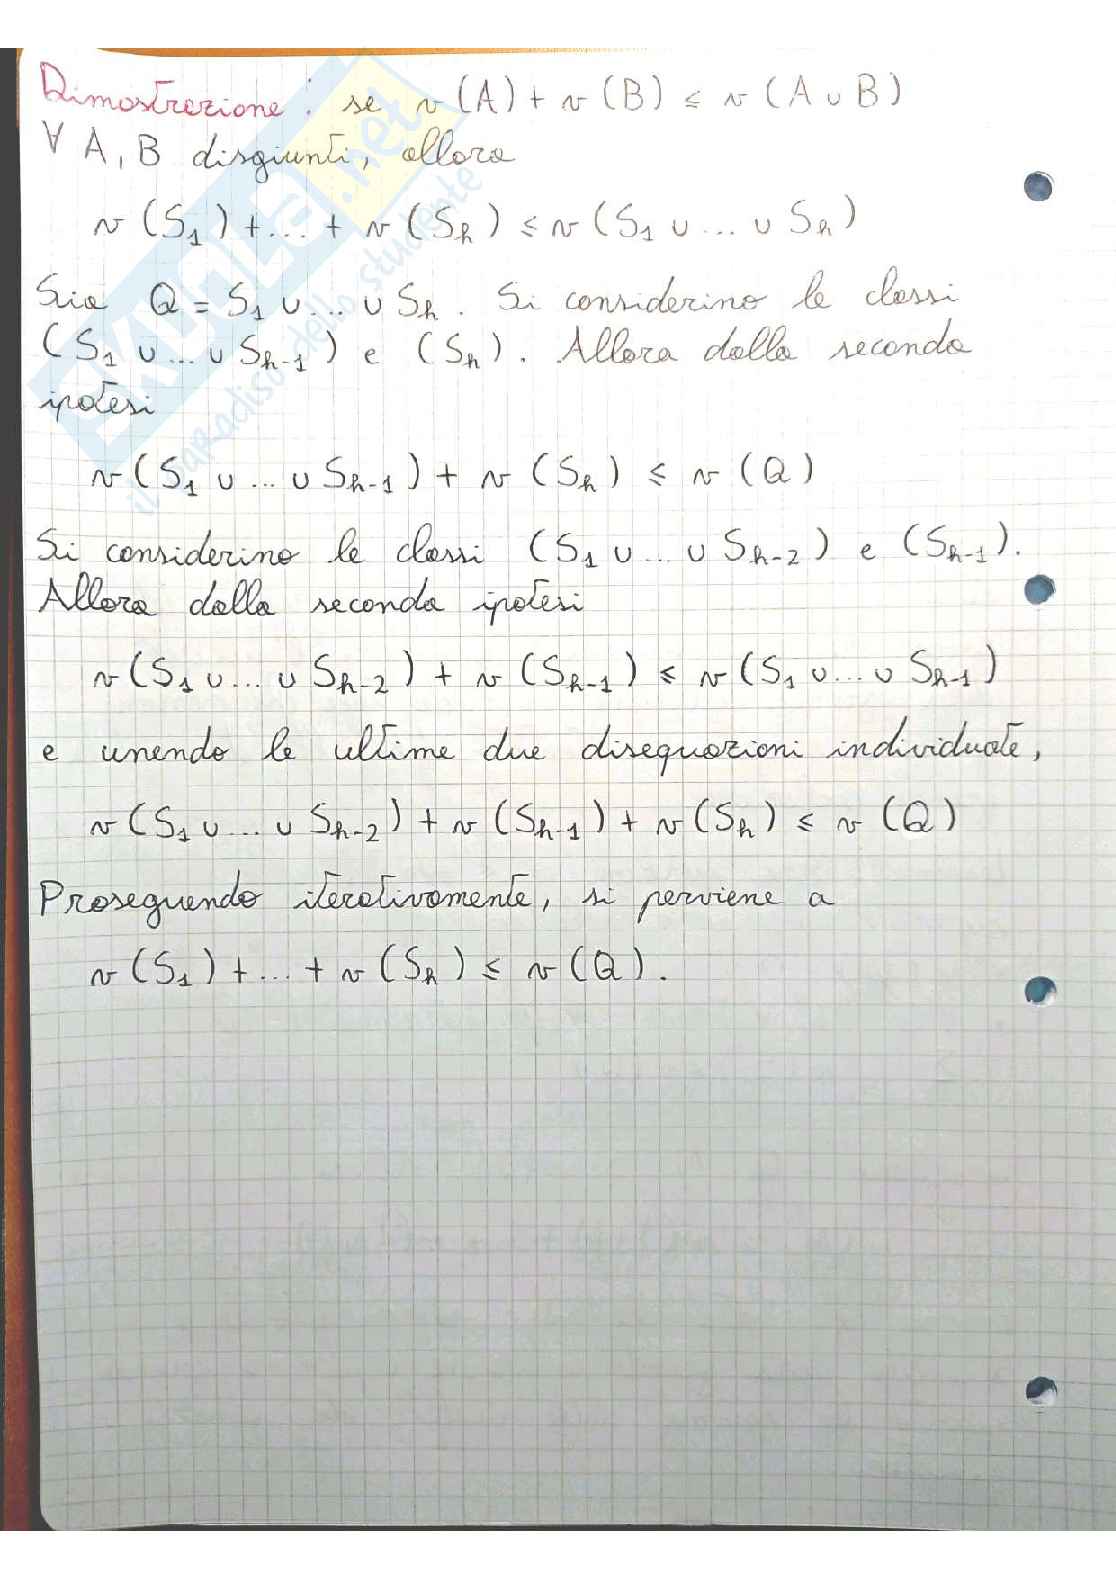 Dimostrazione : se v (A) + v (B) ≤ v (A ∪ B)
∀ A, B disgiunti, allora
v (S₁) + ... + v (Sₕ) ≤ v (S₁ ∪ ... ∪ Sₕ)
Sia Q = S₁ ∪ ... ∪ Sₕ . Si considerino le classi
(S₁ ∪ ... ∪ Sₕ₋₁) e (Sₕ). Allora dalla seconda
ipotesi
v (S₁ ∪ ... ∪ Sₕ₋₁) + v (Sₕ) ≤ v (Q)
Si considerino le classi (S₁ ∪ ... ∪ Sₕ₋₂) e (Sₕ₋₁).
Allora dalla seconda ipotesi
v (S₁ ∪ ... ∪ Sₕ₋₂) + v (Sₕ₋₁) ≤ v (S₁ ∪ ... ∪ Sₕ₋₁)
e unendo le ultime due disequazioni individuate,
v (S₁ ∪ ... ∪ Sₕ₋₂) + v (Sₕ₋₁) + v (Sₕ) ≤ v (Q)
Proseguendo iterativamente, si perviene a
v (S₁) + ... + v (Sₕ) ≤ v (Q).
SKUOLA.net
il paradiso dello studente